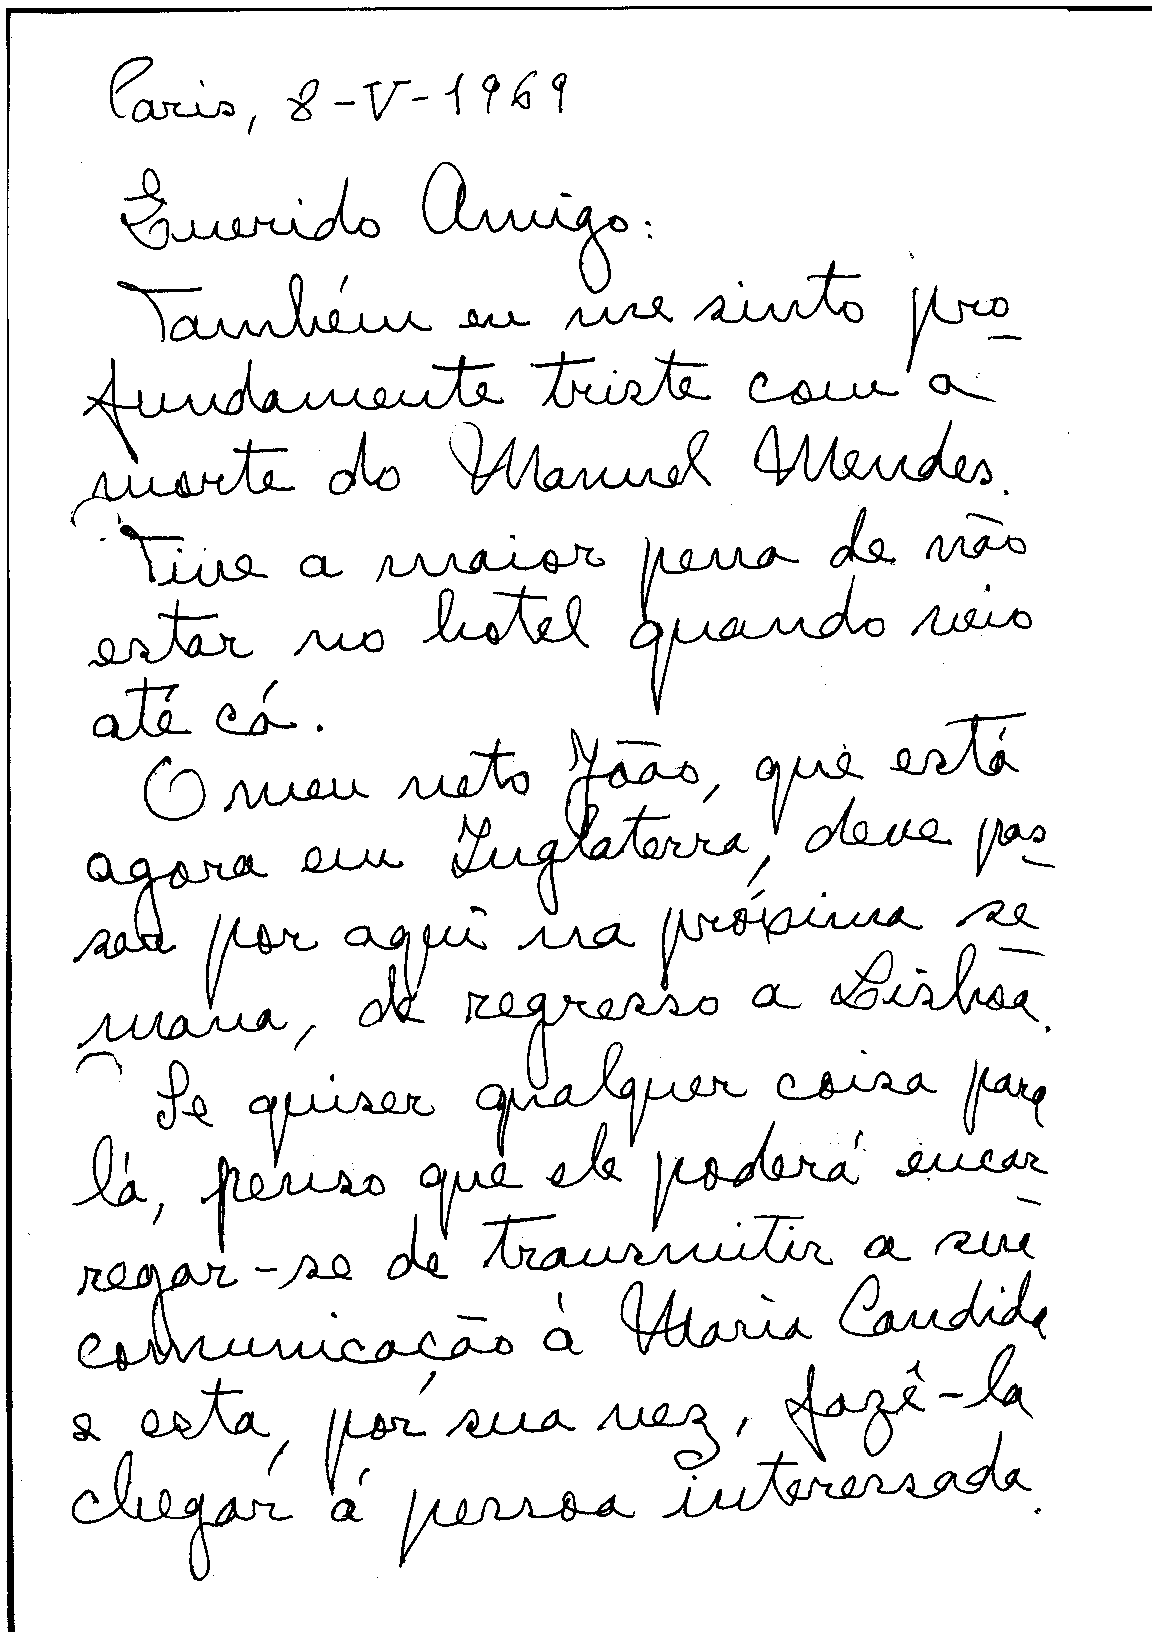 Paris, 8-V-1969
Querido Amigo:
Também eu me sinto pro
fundamente triste com a
morte do Manuel Mendes.
Tive a maior pena de não
estar no hotel quando veio
até cá.
O meu neto João, que está
agora em Inglaterra, deve pas
sar por aqui na próxima se
mana, de regresso a Lisboa.
Se quiser qualquer coisa para
lá, penso que ele poderá encar
regar-se de transmitir a sua
comunicação à Maria Candida
e esta, por sua vez, fazê-la
chegar á pessoa interessada.